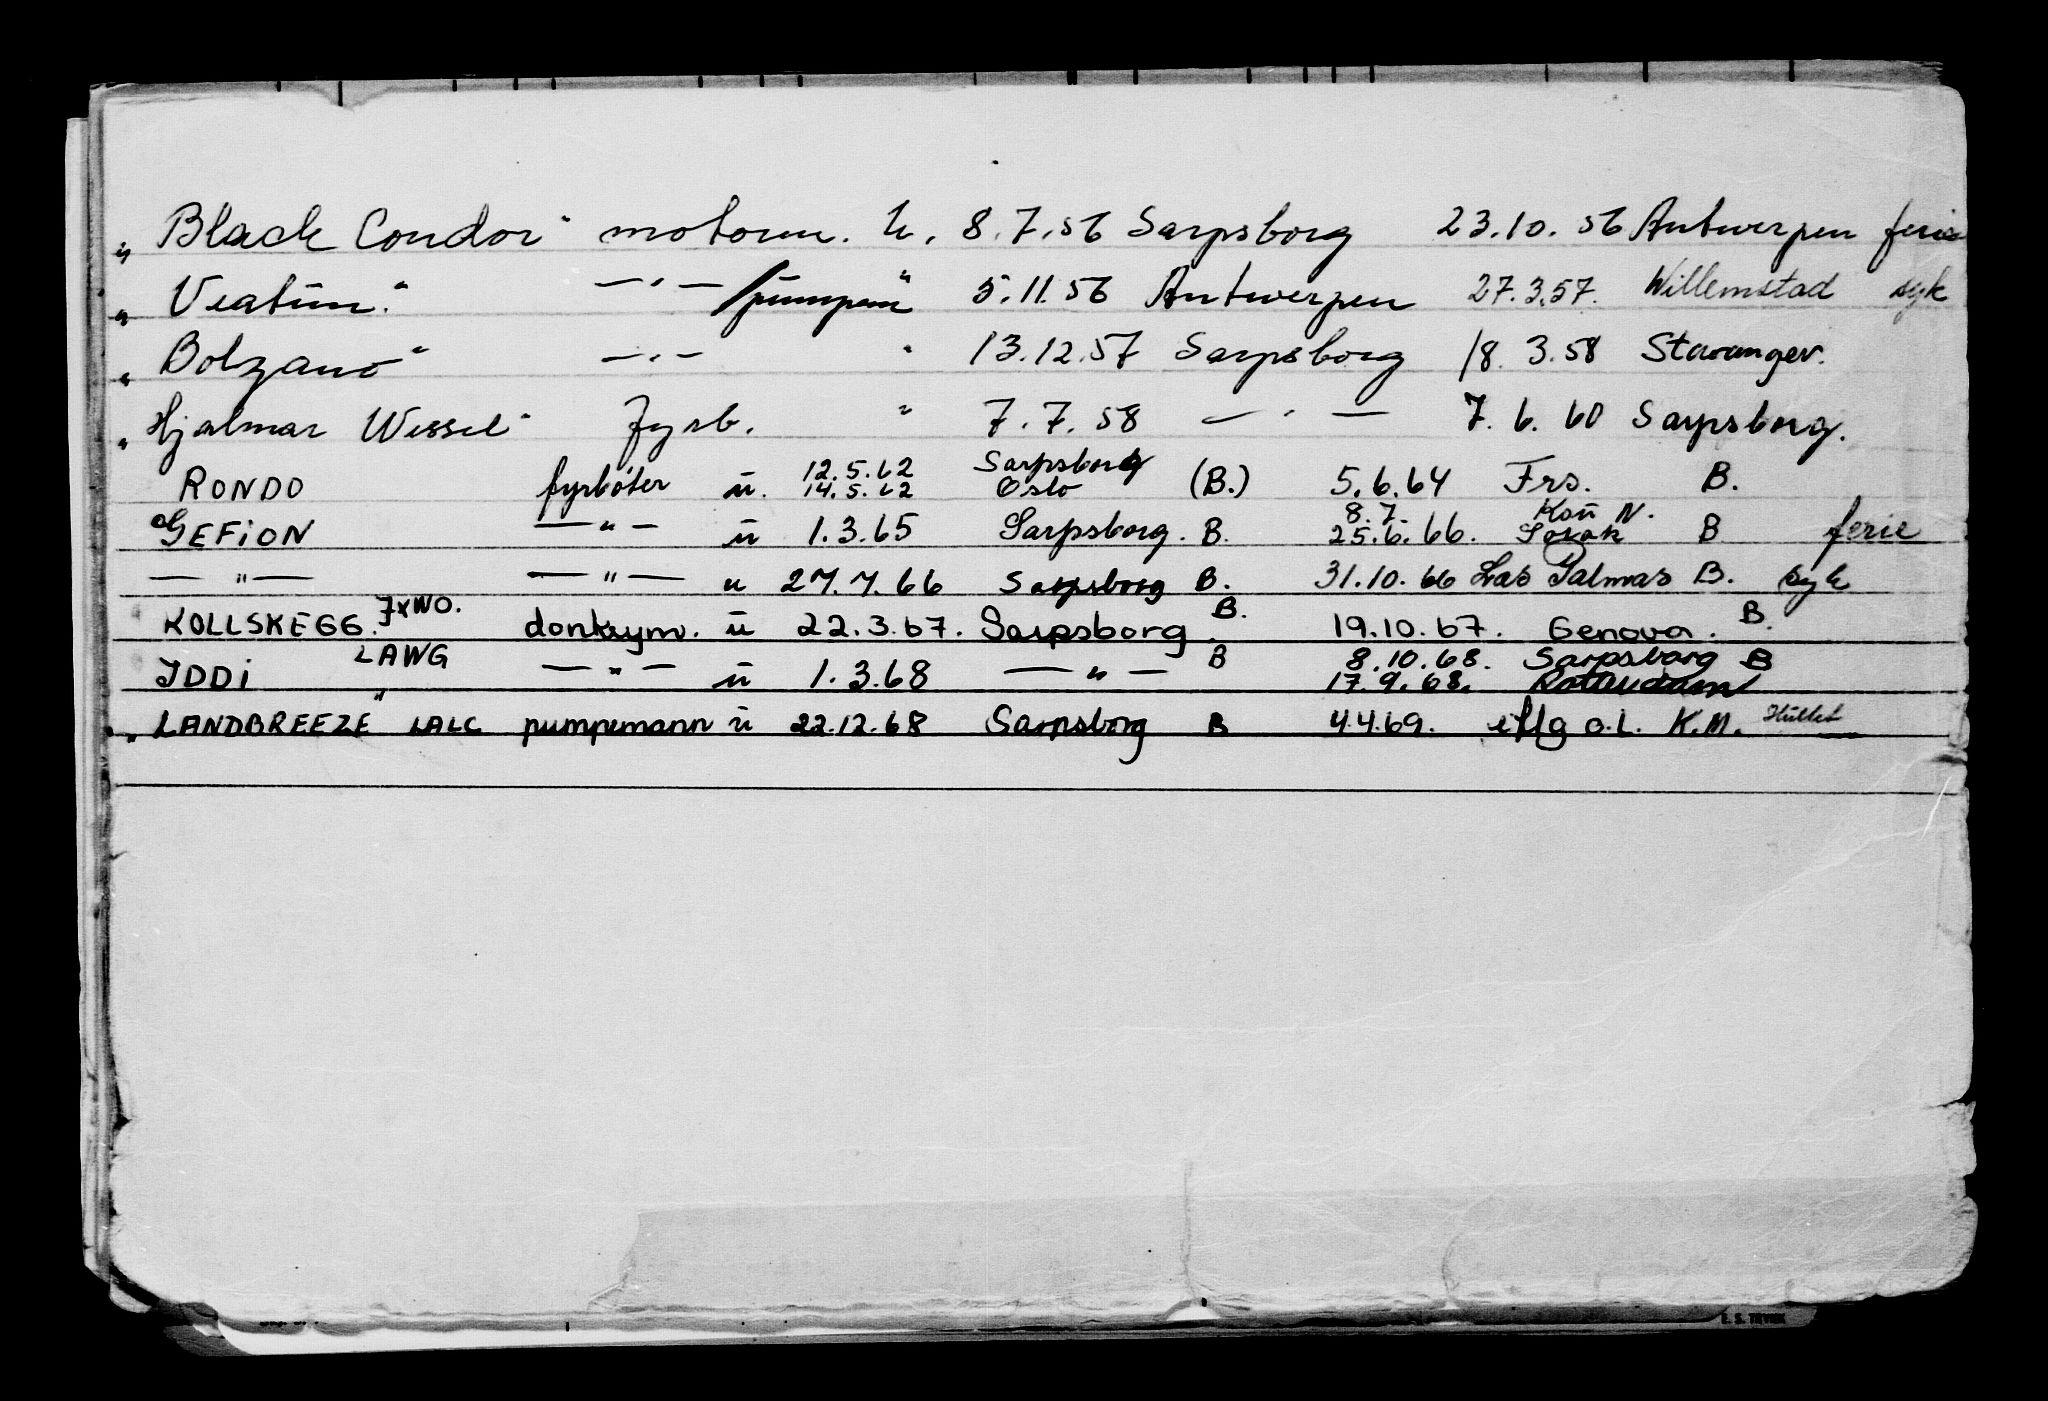 „ Black Condor" motorm. u. 8.7.56 Sarpsborg 23.10.56 Antwerpen ferie
„ Vestun." —"— /pumpem " 5.11.56 Antwerpen 27.3.57. Willemstad syk
„ Bolzano" —"— " 13.12.57 Sarpsborg 18.3.58 Stavanger.
„ Hjalmar Wessel" fyrb. " 7.7.58 —"— 7.6.60 Sarpsborg.
12.5.62 Sarpsborg
RONDO fyrbøter u. 14.5.62 Oslo (B.) 5.6.64 Frs. B.
8.7. N.
GEFION —"— u 1.3.65 Sarpsborg. B. 25.6.66. B ferie
—"— —"— u 27.7.66 Sarpsborg B. 31.10.66 Las Palmas B. syk
KOLLSKEGG. JXWO. donkeym. u 22.3.67. Sarpsborg. B. 19.10.67. Genova. B.
8.10.68. Sarpsborg B
IDDI LAWG —"— u 1.3.68 —"— B 17.9.68. Rotterdam
„ LANDBREEZE" LALC pumpemann u 22.12.68 Sarpsborg B 4.4.69. iflg o.l. K.M.
E. S. TRYKK